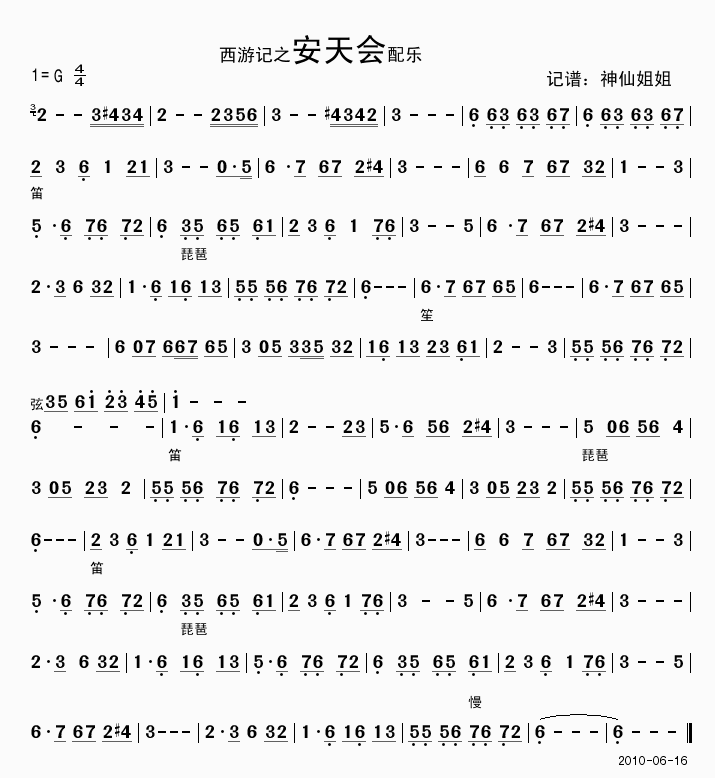 西游记之安天会配乐
1=G 4/4
记谱：神仙姐姐
3 2 - - 3#434 | 2 - - 2356 | 3 - - #4342 | 3 - - - | 6 63 63 67 | 6 63 63 67 |
2 3 6 1 21 | 3 - - 0·5 | 6 ·7 67 2#4 | 3 - - - | 6 6 7 67 32 | 1 - - 3 |
笛
5 ·6 76 72 | 6 35 65 61 | 2 3 6 1 76 | 3 - - 5 | 6 ·7 67 2#4 | 3 - - - |
琵琶
2·3 6 32 | 1·6 16 13 | 55 56 76 72 | 6 - - - | 6·7 67 65 | 6 - - - | 6·7 67 65 |
笙
3 - - - | 6 07 667 65 | 3 05 335 32 | 16 13 23 61 | 2 - - 3 | 55 56 76 72 |
弦 35 61 23 45 | 1 - - -
6 - - - | 1·6 16 13 | 2 - - 23 | 5·6 56 2#4 | 3 - - - | 5 06 56 4 |
笛 琵琶
3 05 23 2 | 55 56 76 72 | 6 - - - | 5 06 56 4 | 3 05 23 2 | 55 56 76 72 |
6 - - - | 2 3 6 1 21 | 3 - - 0·5 | 6·7 67 2#4 | 3 - - - | 6 6 7 67 32 | 1 - - 3 |
笛
5 ·6 76 72 | 6 35 65 61 | 2 3 6 1 76 | 3 - - 5 | 6 ·7 67 2#4 | 3 - - - |
琵琶
2·3 6 32 | 1·6 16 13 | 5·6 76 72 | 6 35 65 61 | 2 3 6 1 76 | 3 - - 5 |
慢
6·7 67 2#4 | 3 - - - | 2·3 6 32 | 1·6 16 13 | 55 56 76 72 | 6 - - - | 6 - - - ‖
2010-06-16